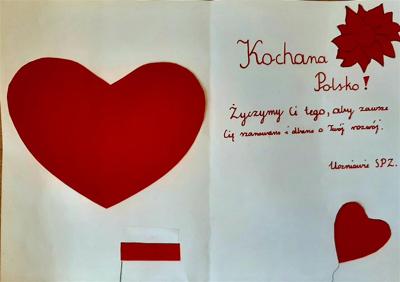 Kochana
Polsko!
Życzymy Ci tego, aby zawsze
Cię szanowano i dbano o Twój rozwój.
Uczniowie S.P.2.